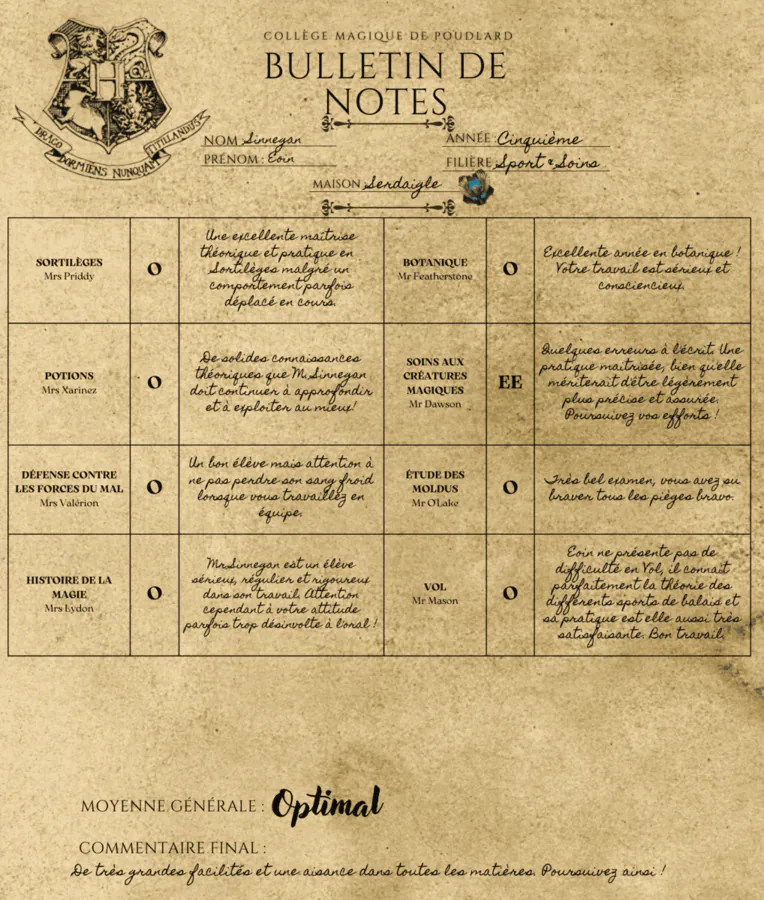 COLLÈGE MAGIQUE DE POUDLARD
BULLETIN DE
NOTES
DRACO DORMIENS NUNQUAM TITILLANDUS
NOM Sinnegan
PRÉNOM : Eoin
ANNÉE Cinquième
FILIÈRE Sport & Soins
MAISON Serdaigle
SORTILÈGES
Mrs Priddy
O
Une excellente maîtrise
théorique et pratique en
Sortilèges malgré un
comportement parfois
déplacé en cours.
BOTANIQUE
Mr Featherstone
O
Excellente année en botanique !
Votre travail est sérieux et
consciencieux.
POTIONS
Mrs Xarinez
O
De solides connaissances
théoriques que M. Sinnegan
doit continuer à approfondir
et à exploiter au mieux!
SOINS AUX
CRÉATURES
MAGIQUES
Mr Dawson
EE
Quelques erreurs à l'écrit. Une
pratique maitrisée, bien qu'elle
mériterait d'être légèrement
plus précise et assurée.
Poursuivez vos efforts !
DÉFENSE CONTRE
LES FORCES DU MAL
Mrs Valérion
O
Un bon élève mais attention à
ne pas perdre son sang froid
lorsque vous travaillez en
équipe.
ÉTUDE DES
MOLDUS
Mr O'Lake
O
Très bel examen, vous avez su
braver tous les pièges bravo.
HISTOIRE DE LA
MAGIE
Mrs Lydon
O
Mr Sinnegan est un élève
sérieux, régulier et rigoureux
dans son travail. Attention
cependant à votre attitude
parfois trop désinvolte à l'oral !
VOL
Mr Mason
O
Eoin ne présente pas de
difficulté en Vol, il connait
parfaitement la théorie des
différents sports de balais et
sa pratique est elle aussi très
satisfaisante. Bon travail.
MOYENNE GÉNÉRALE : Optimal
COMMENTAIRE FINAL :
De très grandes facilités et une aisance dans toutes les matières. Poursuivez ainsi !